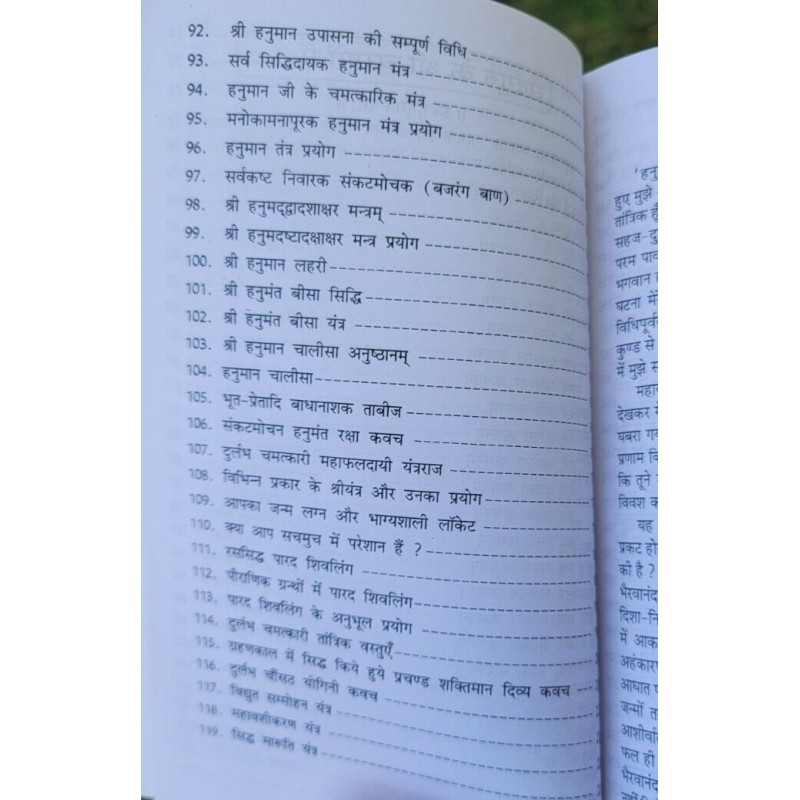 92. श्री हनुमान उपासना की सम्पूर्ण विधि
93. सर्व सिद्धिदायक हनुमान मंत्र
94. हनुमान जी के चमत्कारिक मंत्र
95. मनोकामनापूरक हनुमान मंत्र प्रयोग
96. हनुमान तंत्र प्रयोग
97. सर्वकष्ट निवारक संकटमोचक (बजरंग बाण)
98. श्री हनुमद्द्वादशाक्षर मन्त्रम्
99. श्री हनुमदष्टादक्षाक्षर मन्त्र प्रयोग
100. श्री हनुमान लहरी
101. श्री हनुमंत बीसा सिद्धि
102. श्री हनुमंत बीसा यंत्र
103. श्री हनुमान चालीसा अनुष्ठानम्
104. हनुमान चालीसा
105. भूत-प्रेतादि बाधानाशक ताबीज
106. संकटमोचन हनुमंत रक्षा कवच
107. दुर्लभ चमत्कारी महाफलदायी यंत्रराज
108. विभिन्न प्रकार के श्रीयंत्र और उनका प्रयोग
109. आपका जन्म लग्न और भाग्यशाली लॉकेट
110. क्या आप सचमुच में परेशान हैं ?
111. रससिद्ध पारद शिवलिंग
112. पौराणिक ग्रन्थों में पारद शिवलिंग
113. पारद शिवलिंग के अनुभूल प्रयोग
114. दुर्लभ चमत्कारी तांत्रिक वस्तुएँ
115. ग्रहणकाल में सिद्ध किये हुये प्रचण्ड शक्तिमान दिव्य कवच
116. दुर्लभ चौंसठ योगिनी कवच
117. विद्युत सम्मोहन यंत्र
118. महावशीकरण यंत्र
119. सिद्ध मारूति यंत्र
हुए मुझे
तांत्रिक
सहज-दु
परम पाव
भगवान
घटना में
विधिपूर्व
कुण्ड से
में मुझे
महा
देखकर
घबरा गय
प्रणाम वि
कि तूने
विवश क
यह
प्रकट हो
को है ?
भैरवानंद
दिशा-नि
में आक
अहंकारण
आघात
जन्मों त
आशीर्वा
फल ही
भैरवानंद